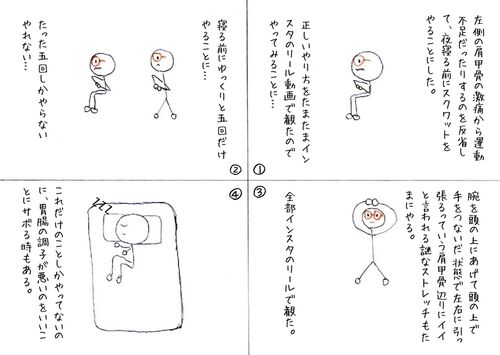 ①
左側の肩甲骨の激痛から運動
不足だったりするのを反省し
て、夜寝る前にスクワットを
やることにした。
正しいやり方をたまたまイン
スタのリール動画で観たので
やってみることに…
②
寝る前にゆっくりと五回だけ
やることに…
たった五回しかやらない
やれない…
③
腕を頭の上にあげて頭の上で
手をつないだ状態で左右に引っ
張るっていう肩甲骨辺りにイイ
と言われる謎なストレッチもた
まにやる。
全部インスタのリールで観た。
④
zzz
これだけのことしかやってないの
に、胃腸の調子が悪いのをいいこ
とにサボる時もある。